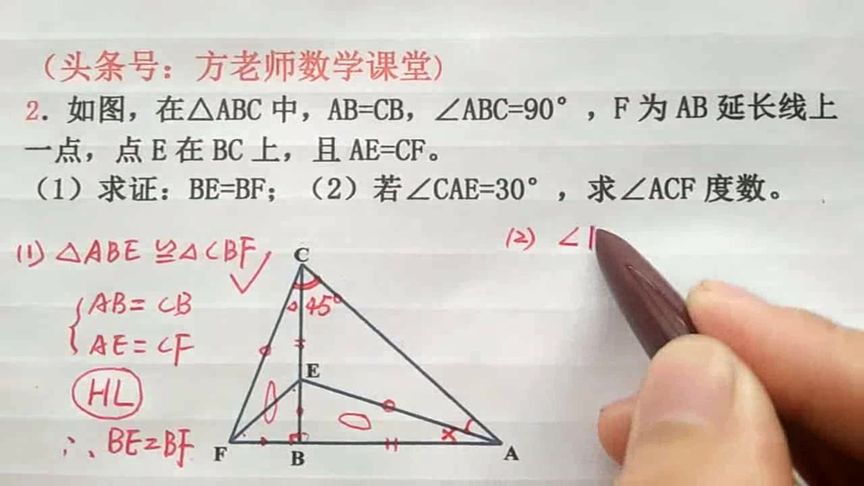 （头条号：方老师数学课堂)
2. 如图，在△ABC 中，AB=CB，∠ABC=90°，F 为 AB 延长线上
一点，点 E 在 BC 上，且 AE=CF。
（1）求证：BE=BF；（2）若∠CAE=30°，求∠ACF 度数。
(1) △ABE ≌ △CBF
AB = CB
AE = CF
HL
∴ BE=BF
(2) ∠1
C
45°
E
×
F
B
A